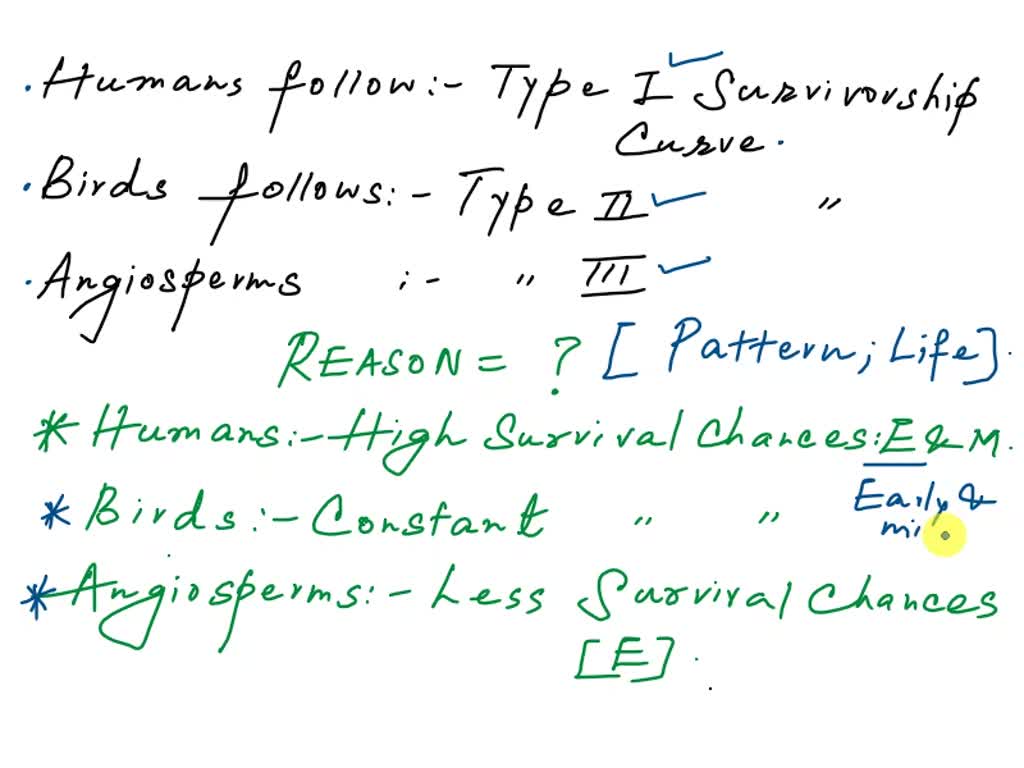 · Humans follow:- Type I Survivorship
Curve.
· Birds follows:- Type II "
· Angiosperms :- " III
REASON = ? [ Pattern; Life].
* Humans:- High Survival Chances: E & M.
* Birds:- Constant " "
Early &
mi
* Angiosperms:- Less Survival Chances
[E].